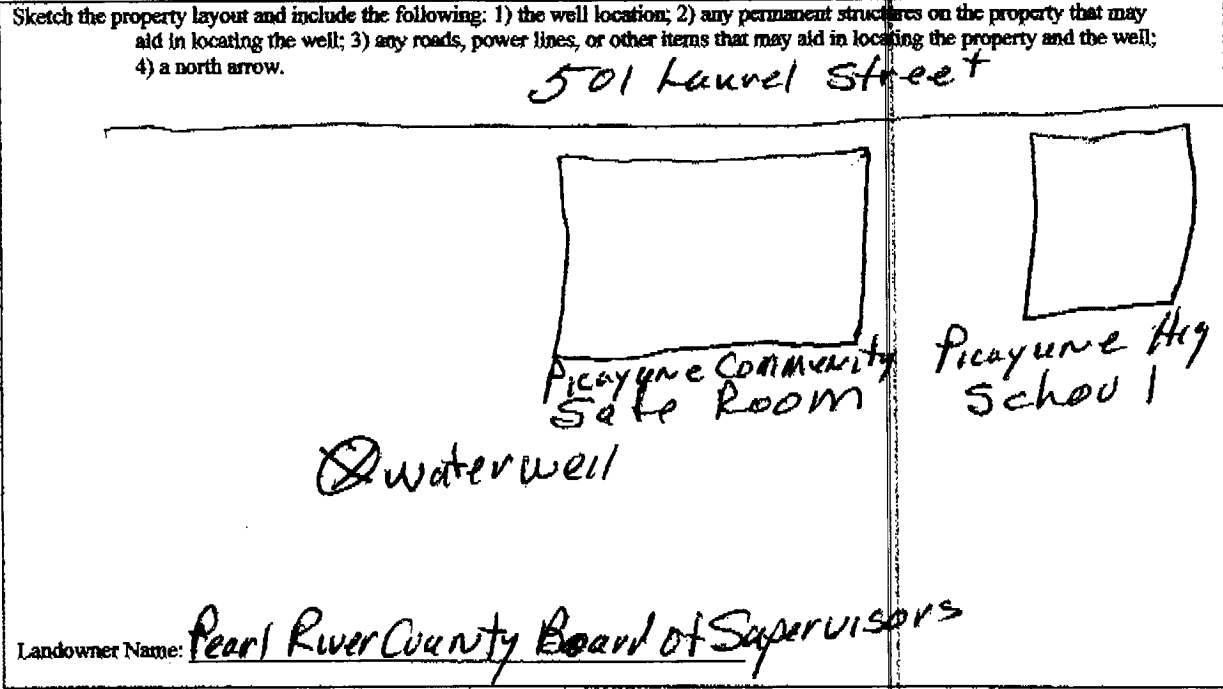 Sketch the property layout and include the following: 1) the well location; 2) any permanent structures on the property that may
aid in locating the well; 3) any roads, power lines, or other items that may aid in locating the property and the well;
4) a north arrow.
501 Laurel Street
Picayune Community
Safe Room
Picayune Hig
School
water well
Landowner Name: Pearl River County Board of Supervisors